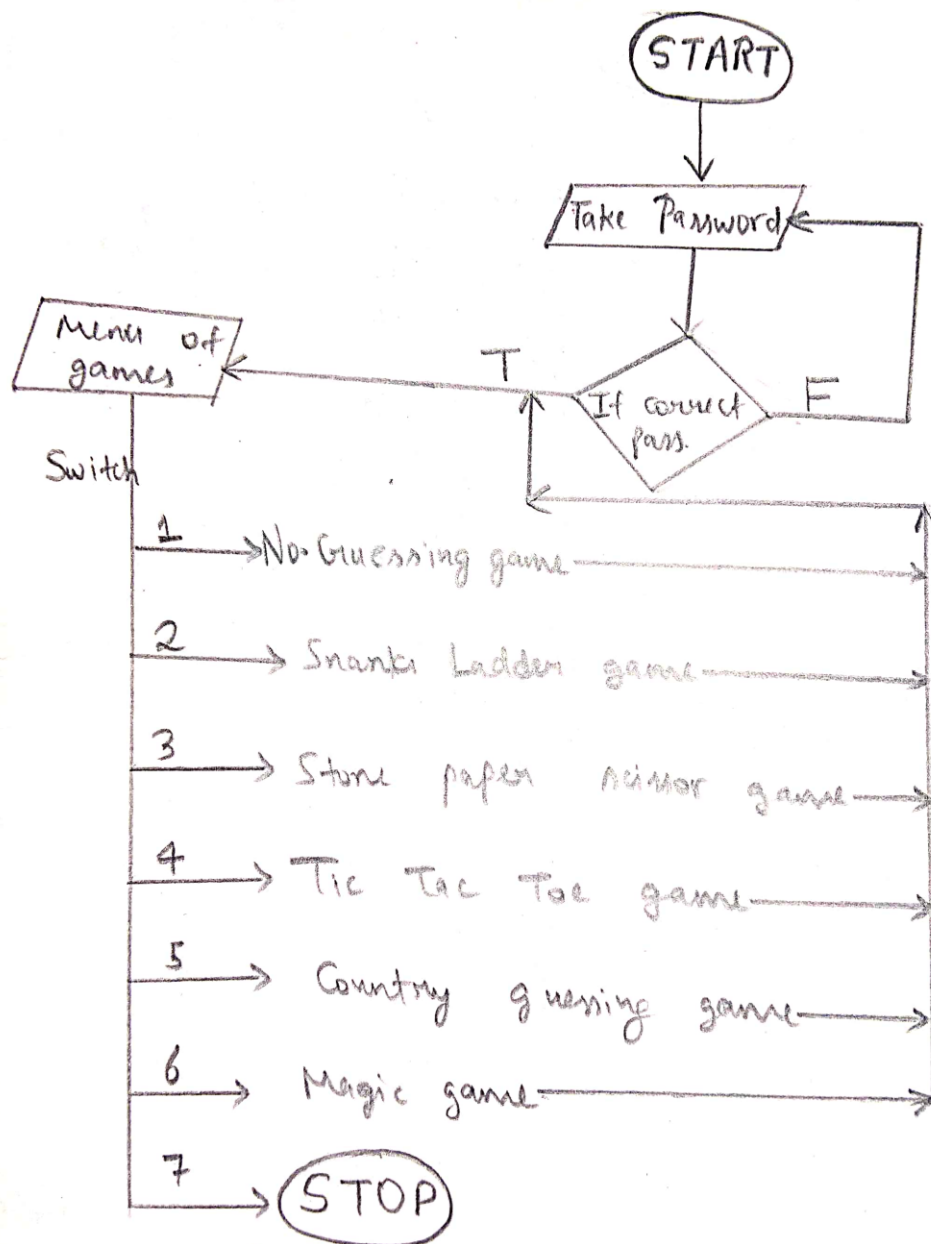 START
Take Password
If correct
pass.
T
F
Menu of
games
Switch
1
No. Guessing game
2
Snanks Ladder game
3
Stone paper scissor game
4
Tic Tac Toe game
5
Country guessing game
6
Magic game
7
STOP